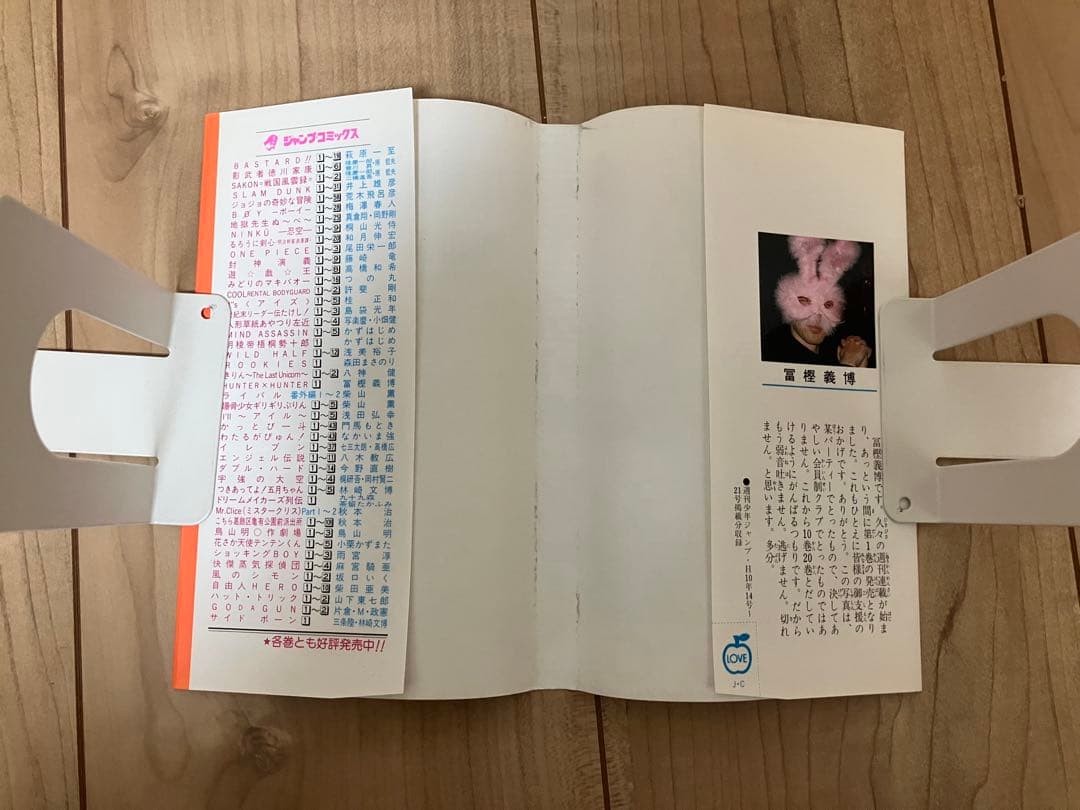 ジャンプコミックス
BASTARD!! 1~ 萩原一至
影武者徳川家康 1~
SAKON=戦国風雲録= 1~2
SLAM DUNK 1~ 井上雄彦
ジョジョの奇妙な冒険 1~ 荒木飛呂彦
BØY ─ボーイ─ 1~ 梅澤春人
地獄先生ぬ~べ~ 1~ 真倉翔・岡野剛
NINKŪ ─忍空─ 1~ 桐山光侍
るろうに剣心 1~ 和月伸宏
ONE PIECE 1~3 尾田栄一郎
封神演義 1~9 藤崎竜
遊☆戯☆王 1~ 高橋和希
みどりのマキバオー 1~ つの丸
COOL RENTAL BODYGUARD 1~2 許斐剛
I"s〈アイズ〉 1~5 桂正和
世紀末リーダー伝たけし! 1~3 島袋光年
人形草紙あやつり左近 1~4 写楽麿・小畑健
MIND ASSASSIN 1~5 かずはじめ
明稜帝梧桐勢十郎 1 かずはじめ
WILD HALF 1~ 浅美裕子
ROOKIES 1 森田まさのり
きりん~The Last Unicorn~ 1~2 八神健
HUNTER×HUNTER 1 冨樫義博
ライバル 番外編1~2 柴山薫
爆骨少女ギリギリぷりん 1~5 柴山薫
I'll ~アイル~ 1~5 浅田弘幸
かっとび一斗 1~ 門馬もとき
わたるがぴゅん! 1~ なかいま強
イレブン 1~ 七三太朗・高橋広
エンジェル伝説 1~ 八木教広
ダブル・ハード 1~ 今野直樹
宇強の大空 1~4 梶研吾・岡村賢二
つきあってよ!五月ちゃん 1~5 林崎文博
ドリームメイカーズ列伝 1
Mr.Clice(ミスタークリス) Part1~2 秋本治
こちら葛飾区亀有公園前派出所 1~ 秋本治
鳥山明○作劇場 1~3 鳥山明
花さか天使テンテンくん 1~5 小栗かずまた
ショッキングBOY 1~3 雨宮淳
快傑蒸気探偵団 1~4 麻宮騎亜
風のシモン 1~2 坂口いく
自由人HERO 1~ 柴田亜美
ハット・トリック 1~ 山下東七郎
GODAGUN 1~2 片倉・M・政憲
サイドボーン 1 三条陸・林崎文博
★各巻とも好評発売中!!
冨樫義博
冨樫義博です。久々の週刊連載が始ま
り、あっという間に第1巻の発売となり
ました。これもひとえに皆様の御支援の
おかげです。ありがとう。この写真は、
某パーティーでとったもので、決してあ
やしい会員制クラブでとったものではあ
りません。これから10巻20巻とだしてい
けるようにがんばるつもりです。だから
もう弱音吐きません。逃げません。切れ
ません。と思います。多分。
●週刊少年ジャンプ・H10年14号~
21号掲載分収録
LOVE
J・C